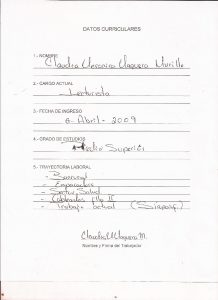 DATOS CURRICULARES
1.- NOMBRE
Claudia Veronica Vaquera Murillo
2.- CARGO ACTUAL
- Lecturista
3.- FECHA DE INGRESO
6 - Abril - 2009
4.- GRADO DE ESTUDIOS
Medio Superior
5.- TRAYECTORIA LABORAL
- Banrural
- Empacadora
- Sector Salud
-
- Trabajo actual
Claudia V Vaquera M.
Nombre y Firma del Trabajador